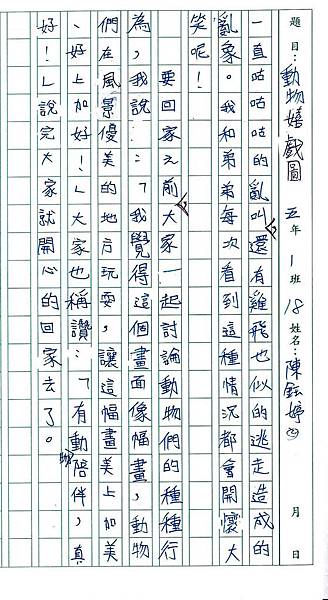 題目：動物嬉戲圖 五年1班18 姓名：陳鈺婷② 月 日
一直咕咕咕的亂叫，還有雞飛也似的逃走造成的
亂象。我和弟弟每次看到這種情況都會開懷大
笑呢！
要回家之前，大家一起討論動物們的種種行
為，我說：「我覺得這個畫面像幅畫，動物
們在風景優美的地方玩耍，讓這幅畫美上加美
、好上加好！」大家也稱讚：「有動物陪伴，真
好！」說完大家就開心的回家去了。